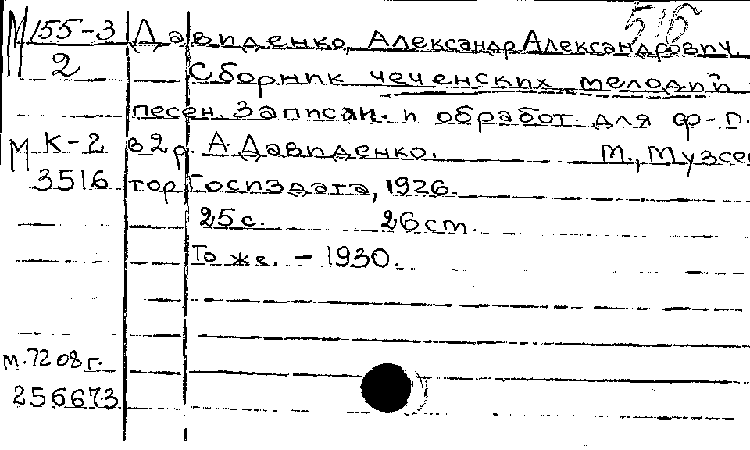 516
М 155-3 Давиденко, Александр Александрович.
2 Сборник чеченских мелодий
песен. Записан. и обработ. для ф-п.
М К-2 в 2 р. А. Давиденко. М., Музсек
3516 тор Госиздата, 1926.
25 с. 26 cm.
То же. - 1930.
м. 7208 г.
256673